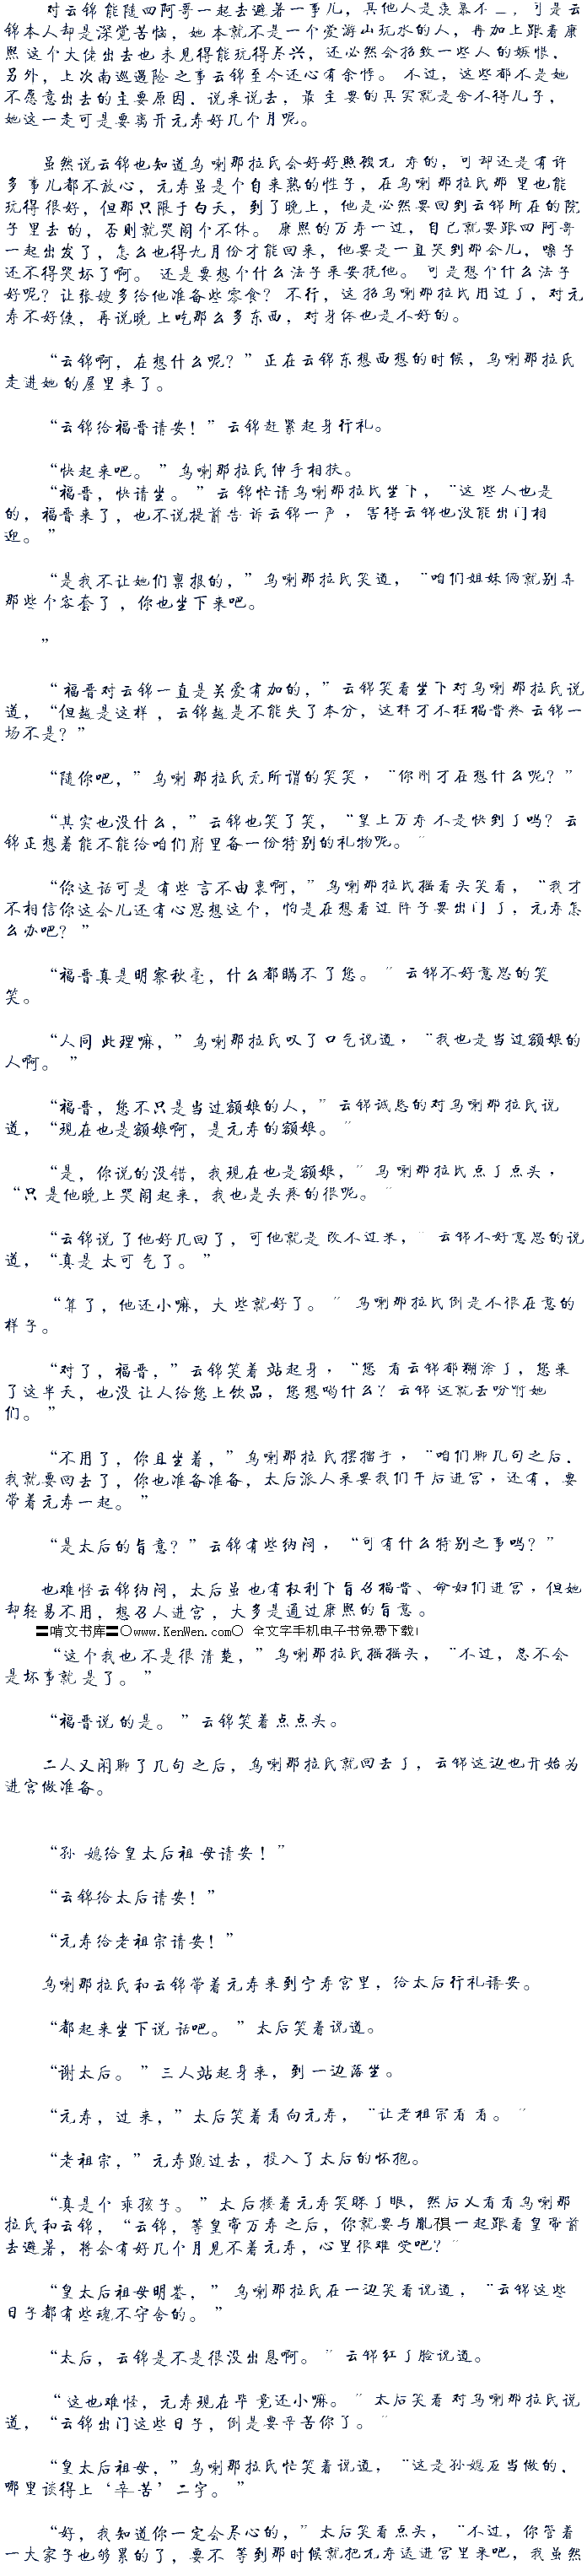 对云锦能随四阿哥一起去避暑一事儿，其他人是羡慕不已，可是云
锦本人却是深觉苦恼，她本就不是一个爱游山玩水的人，再加上跟着康
熙这个大佬出去也未见得能玩得尽兴，还必然会招致一些人的嫉恨，
另外，上次南巡遇险之事云锦至今还心有余悸。 不过，这些都不是她
不愿意出去的主要原因，说来说去，最主要的其实就是舍不得儿子，
她这一走可是要离开元寿好几个月呢。
虽然说云锦也知道乌喇那拉氏会好好照顾元寿的，可却还是有许
多事儿都不放心，元寿虽是个自来熟的性子，在乌喇那拉氏那里也能
玩得很好，但那只限于白天，到了晚上，他是必然要回到云锦所在的院
子里去的，否则就哭闹个不休。 康熙的万寿一过，自己就要跟四阿哥
一起出发了，怎么也得九月份才能回来，他要是一直哭到那会儿，嗓子
还不得哭坏了啊。 还是要想个什么法子来安抚他。 可是想个什么法子
好呢？让张嫂多给他准备些零食？不行，这招乌喇那拉氏用过了，对元
寿不好使，再说晚上吃那么多东西，对身体也是不好的。
“云锦啊，在想什么呢？”正在云锦东想西想的时候，乌喇那拉氏
走进她的屋里来了。
“云锦给福晋请安！”云锦赶紧起身行礼。
“快起来吧。 ”乌喇那拉氏伸手相扶。
“福晋，快请坐。 ”云锦忙请乌喇那拉氏坐下，“这些人也是
的，福晋来了，也不说提前告诉云锦一声，害得云锦也没能出门相
迎。 ”
“是我不让她们禀报的，”乌喇那拉氏笑道，“咱们姐妹俩就别弄
那些个客套了，你也坐下来吧。
”
“福晋对云锦一直是关爱有加的，”云锦笑着坐下对乌喇那拉氏说
道，“但越是这样，云锦越是不能失了本分，这样才不枉福晋疼云锦一
场不是？”
“随你吧，”乌喇那拉氏无所谓的笑笑，“你刚才在想什么呢？”
“其实也没什么，”云锦也笑了笑，“皇上万寿不是快到了吗？云
锦正想着能不能给咱们府里备一份特别的礼物呢。 ”
“你这话可是有些言不由衷啊，”乌喇那拉氏摇着头笑着，“我才
不相信你这会儿还有心思想这个，怕是在想着过阵子要出门了，元寿怎
么办吧？”
“福晋真是明察秋毫，什么都瞒不了您。 ”云锦不好意思的笑
笑。
“人同此理嘛，”乌喇那拉氏叹了口气说道，“我也是当过额娘的
人啊。 ”
“福晋，您不只是当过额娘的人，”云锦诚恳的对乌喇那拉氏说
道，“现在也是额娘啊，是元寿的额娘。 ”
“是，你说的没错，我现在也是额娘，”乌喇那拉氏点了点头，
“只是他晚上哭闹起来，我也是头疼的很呢。 ”
“云锦说了他好几回了，可他就是改不过来，”云锦不好意思的说
道，“真是太可气了。 ”
“算了，他还小嘛，大些就好了。 ”乌喇那拉氏倒是不很在意的
样子。
“对了，福晋，”云锦笑着站起身，“您看云锦都糊涂了，您来
了这半天，也没让人给您上饮品，您想喝什么？云锦这就去吩咐她
们。 ”
“不用了，你且坐着，”乌喇那拉氏摆摆手，“咱们聊几句之后，
我就要回去了，你也准备准备，太后派人来要我们午后进宫，还有，要
带着元寿一起。 ”
“是太后的旨意？”云锦有些纳闷，“可有什么特别之事吗？”
也难怪云锦纳闷，太后虽也有权利下旨召福晋、命妇们进宫，但她
却轻易不用，想召人进宫，大多是通过康熙的旨意。
〓啃文书库〓○www.KenWen.com○ 全文字手机电子书免费下载!
“这个我也不是很清楚，”乌喇那拉氏摇摇头，“不过，总不会
是坏事就是了。 ”
“福晋说的是。 ”云锦笑着点点头。
二人又闲聊了几句之后，乌喇那拉氏就回去了，云锦这边也开始为
进宫做准备。
“孙媳给皇太后祖母请安！”
“云锦给太后请安！”
“元寿给老祖宗请安！”
乌喇那拉氏和云锦带着元寿来到宁寿宫里，给太后行礼请安。
“都起来坐下说话吧。 ”太后笑着说道。
“谢太后。 ”三人站起身来，到一边落坐。
“元寿，过来，”太后笑着看向元寿，“让老祖宗看看。 ”
“老祖宗，”元寿跑过去，投入了太后的怀抱。
“真是个乖孩子。 ”太后搂着元寿笑眯了眼，然后又看看乌喇那
拉氏和云锦，“云锦，等皇帝万寿之后，你就要与胤禛一起跟着皇帝前
去避暑，将会有好几个月见不着元寿，心里很难受吧？”
“皇太后祖母明鉴，”乌喇那拉氏在一边笑着说道，“云锦这些
日子都有些魂不守舍的。 ”
“太后，云锦是不是很没出息啊。 ”云锦红了脸说道。
“这也难怪，元寿现在毕竟还小嘛。 ”太后笑着对乌喇那拉氏说
道，“云锦出门这些日子，倒是要辛苦你了。 ”
“皇太后祖母，”乌喇那拉氏忙笑着说道，“这是孙媳应当做的，
哪里谈得上‘辛苦’二字。 ”
“好，我知道你一定会尽心的，”太后笑着点头，“不过，你管着
一大家子也够累的了，要不等到那时候就把元寿送进宫里来吧，我虽然